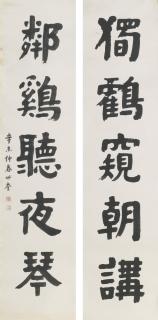 獨鶴窺朝講
鄰雞聽夜琴
辛未仲春